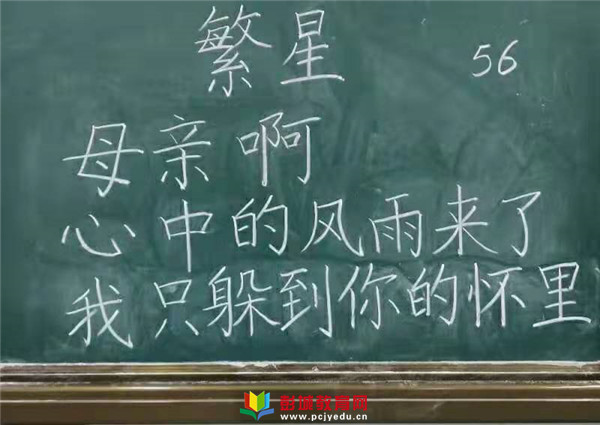 繁星 56
母亲啊
心中的风雨来了
我只躲到你的怀里
彭城教育网
www.pcjyedu.cn